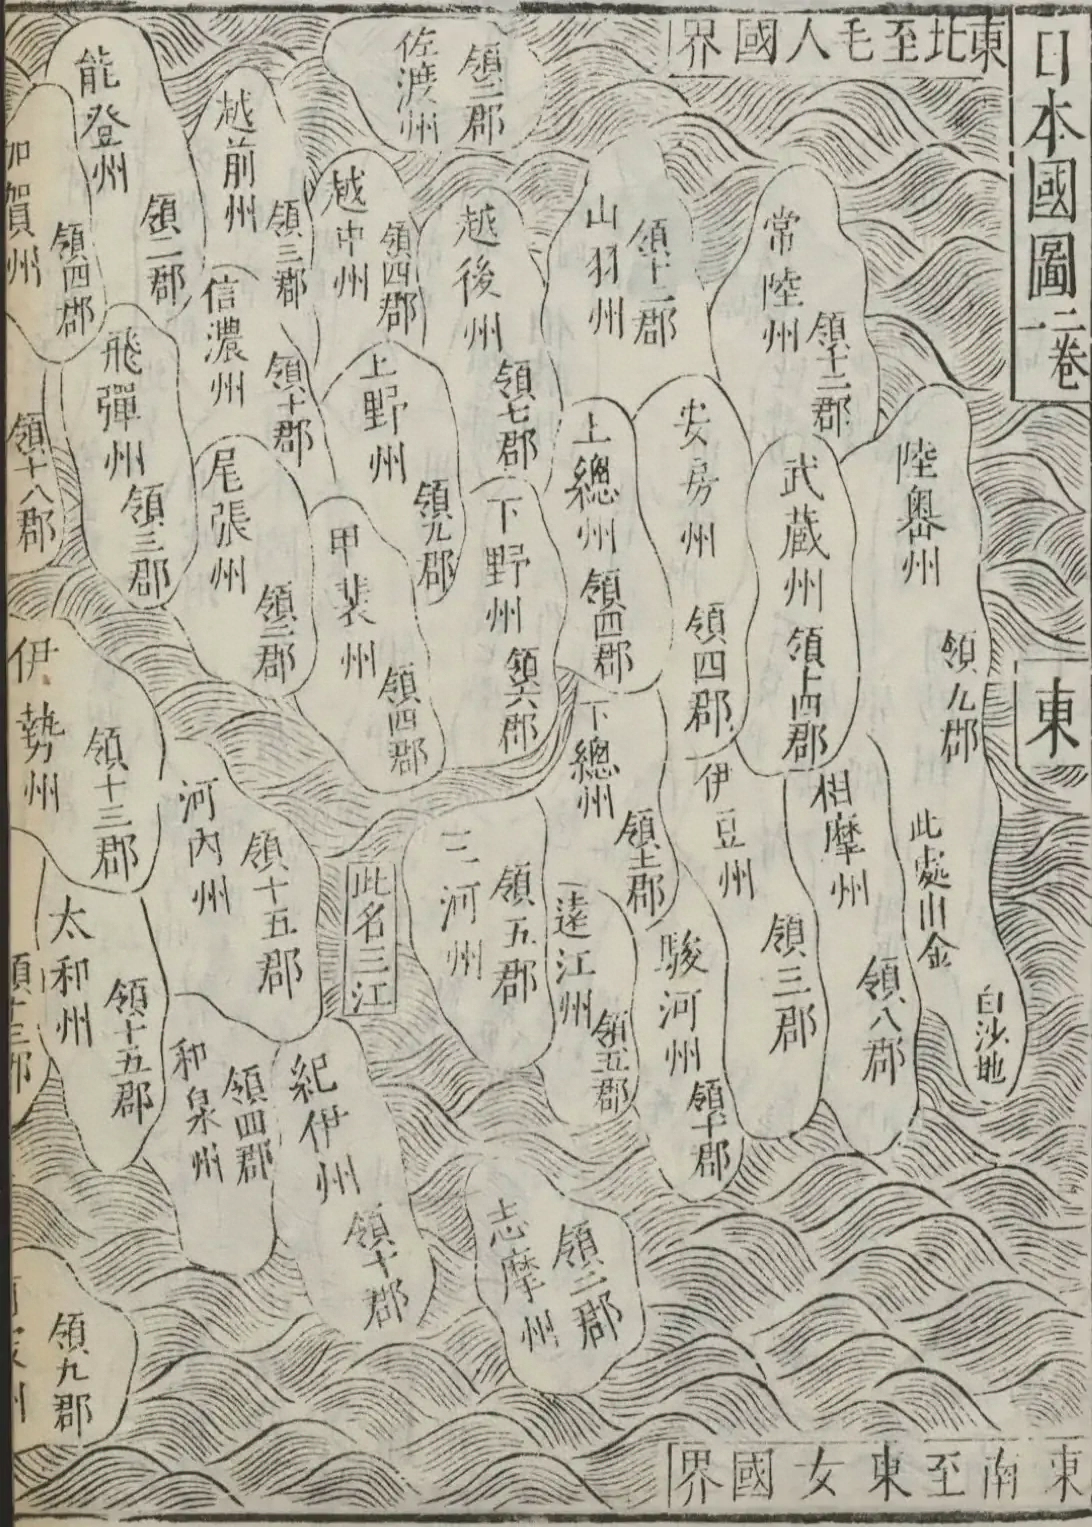 日本國圖
一二卷
東北至毛人國界
東
東南至東女國界
陸奧州
領九郡
此處出金
白沙地
常陸州
領十二郡
武蔵州
領十四郡
相摩州
領八郡
山羽州
領十二郡
安房州
領四郡
伊豆州
領三郡
上總州
領四郡
下總州
領十二郡
駿河州
領十郡
佐渡州
領三郡
越後州
領七郡
下野州
領六郡
遠江州
領五郡
越中州
領四郡
上野州
領九郡
三河州
領五郡
志摩州
領二郡
越前州
領三郡
信濃州
領十郡
甲裴州
領四郡
此名三江
尾張州
領二郡
能登州
領二郡
飛彈州
領三郡
河內州
領十五郡
紀伊州
領十郡
和泉州
領四郡
加賀州
領四郡
領十八郡
伊勢州
領十三郡
太和州
領十五郡
領十三郡
領九郡